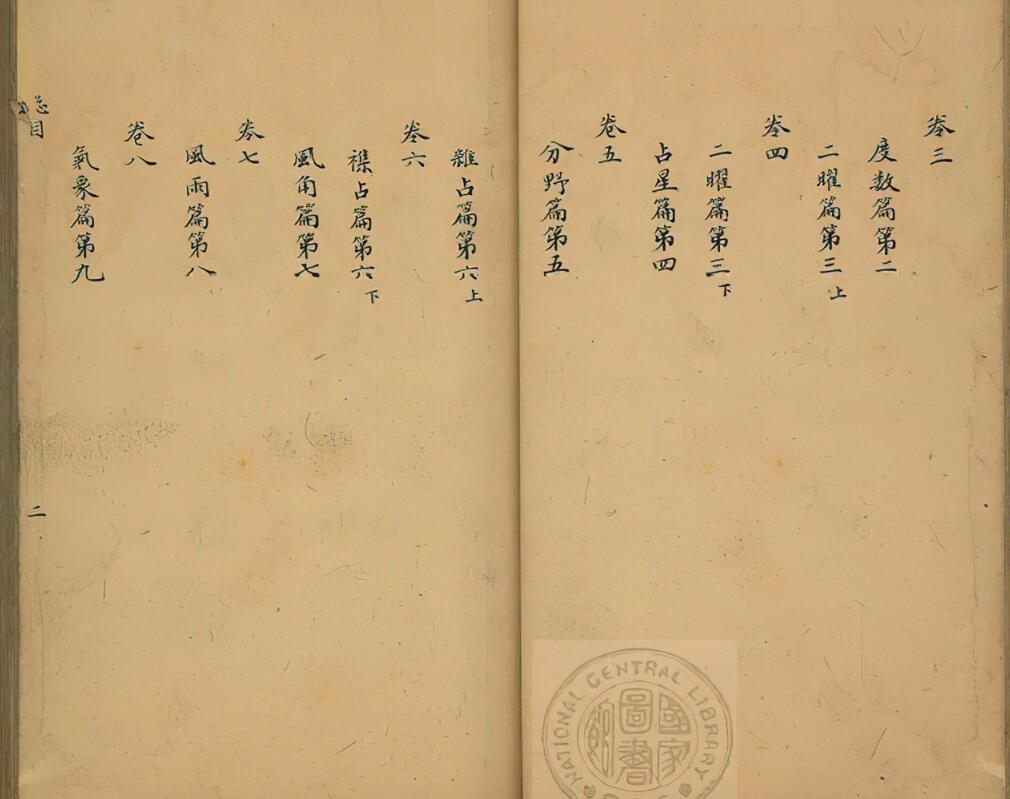 卷三
度数篇第二
二曜篇第三上
卷四
二曜篇第三下
占星篇第四
卷五
分野篇第五
雜占篇第六上
卷六
襍占篇第六下
風角篇第七
卷七
風雨篇第八
卷八
氣象篇第九
总目
二
NATIONAL CENTRAL LIBRARY
國家圖書館